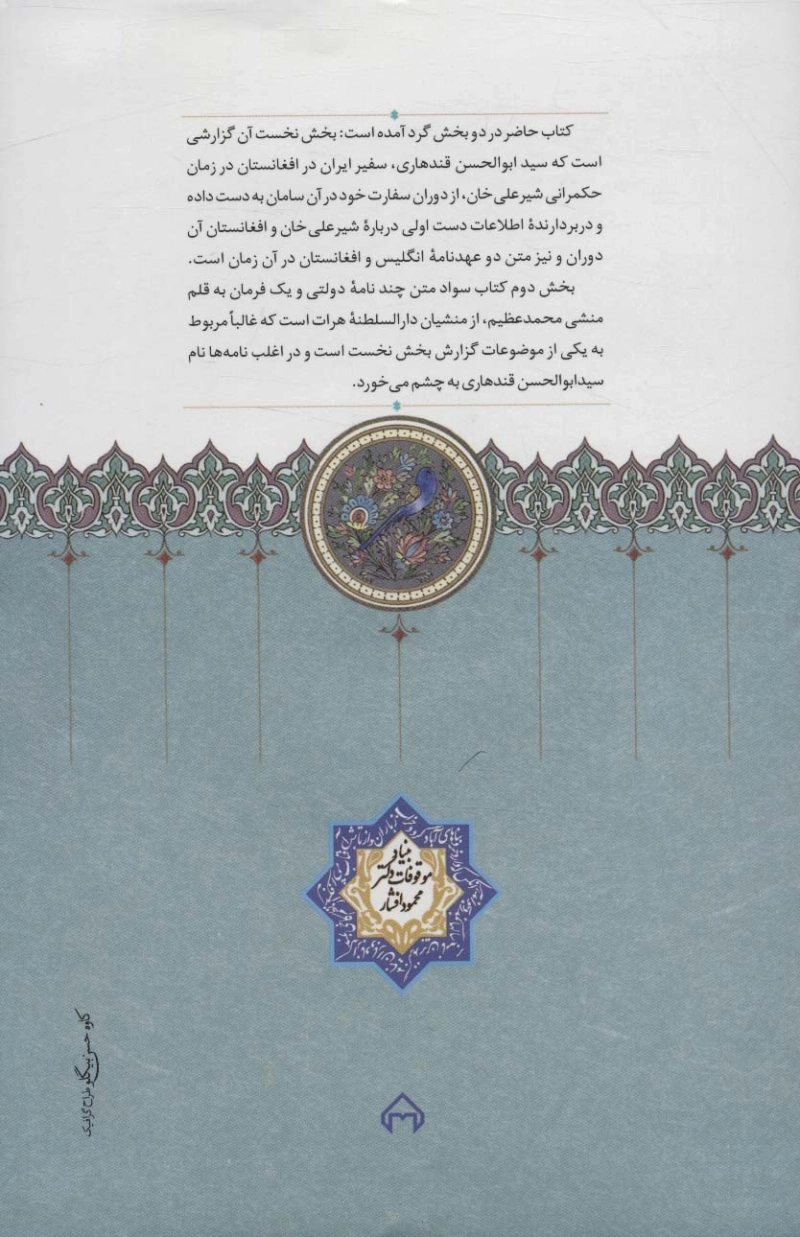 کتاب حاضر در دو بخش گرد آمده است: بخش نخست آن گزارشی
است که سید ابوالحسن قندهاری، سفیر ایران در افغانستان در زمان
حکمرانی شیرعلی‌خان، از دوران سفارت خود در آن سامان به دست داده
و دربردارندهٔ اطلاعات دست اولی دربارهٔ شیرعلی‌خان و افغانستان آن
دوران و نیز متن دو عهدنامهٔ انگلیس و افغانستان در آن زمان است.
بخش دوم کتاب سواد متن چند نامهٔ دولتی و یک فرمان به قلم
منشی محمدعظیم، از منشیان دارالسلطنهٔ هرات است که غالباً مربوط
به یکی از موضوعات گزارش بخش نخست است و در اغلب نامه‌ها نام
سیدابوالحسن قندهاری به چشم می‌خورد.
بنیاد
موقوفات دکتر
محمود افشار
کاوه حسن بیگلو طراح گرافیک